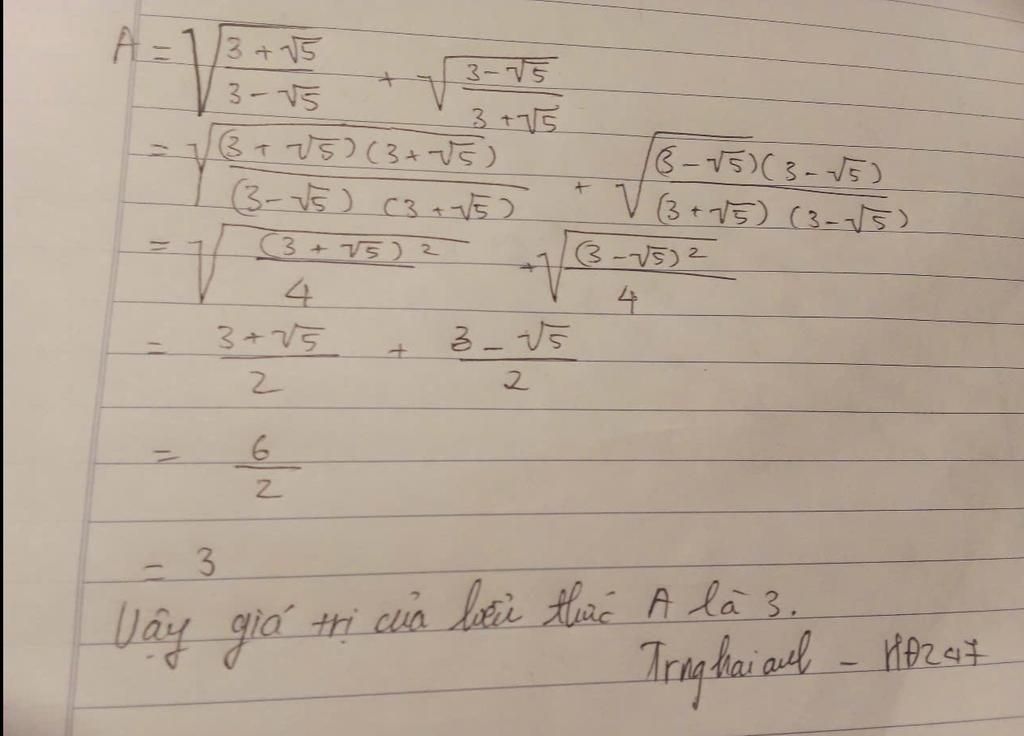 A = √((3 + √5)/(3 - √5)) + √((3 - √5)/(3 + √5))
= √((3 + √5)(3 + √5)/((3 - √5)(3 + √5))) + √((3 - √5)(3 - √5)/((3 + √5)(3 - √5)))
= √((3 + √5)²/4) + √((3 - √5)²/4)
= (3 + √5)/2 + (3 - √5)/2
= 6/2
= 3
Vậy giá trị của biểu thức A là 3.
Trnghaianh - HĐ247